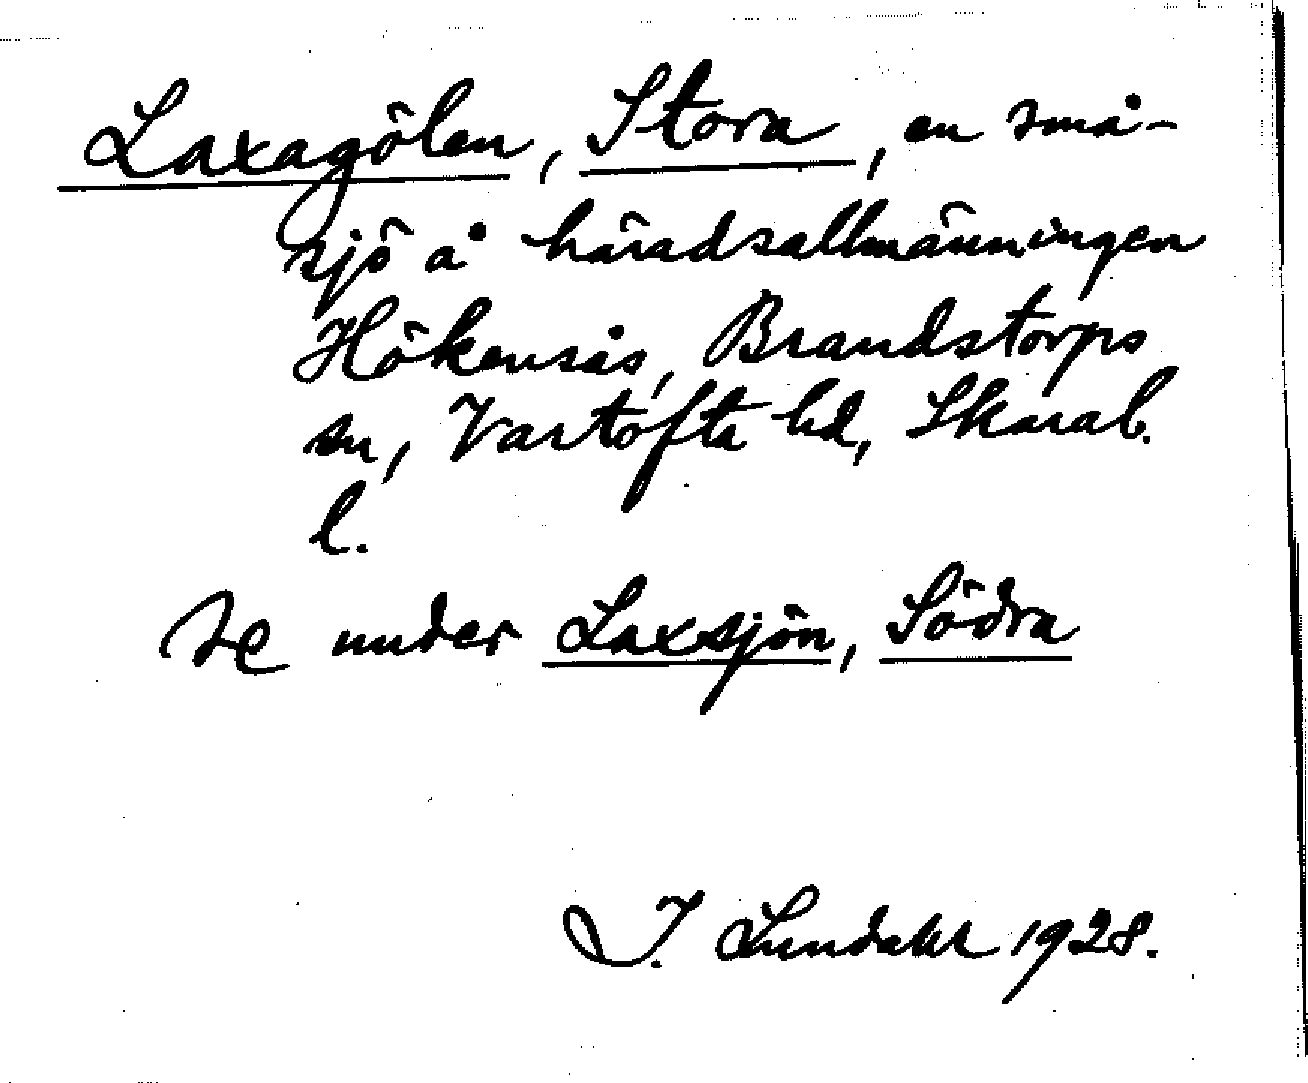 Laxagölen, Stora, en små-
sjö å häradsallmänningen
Hökensås, Brandstorps
sn, Vartofta hd, Skarab.
l.
Se under Laxsjön, Södra
I. Lundahl 1928.